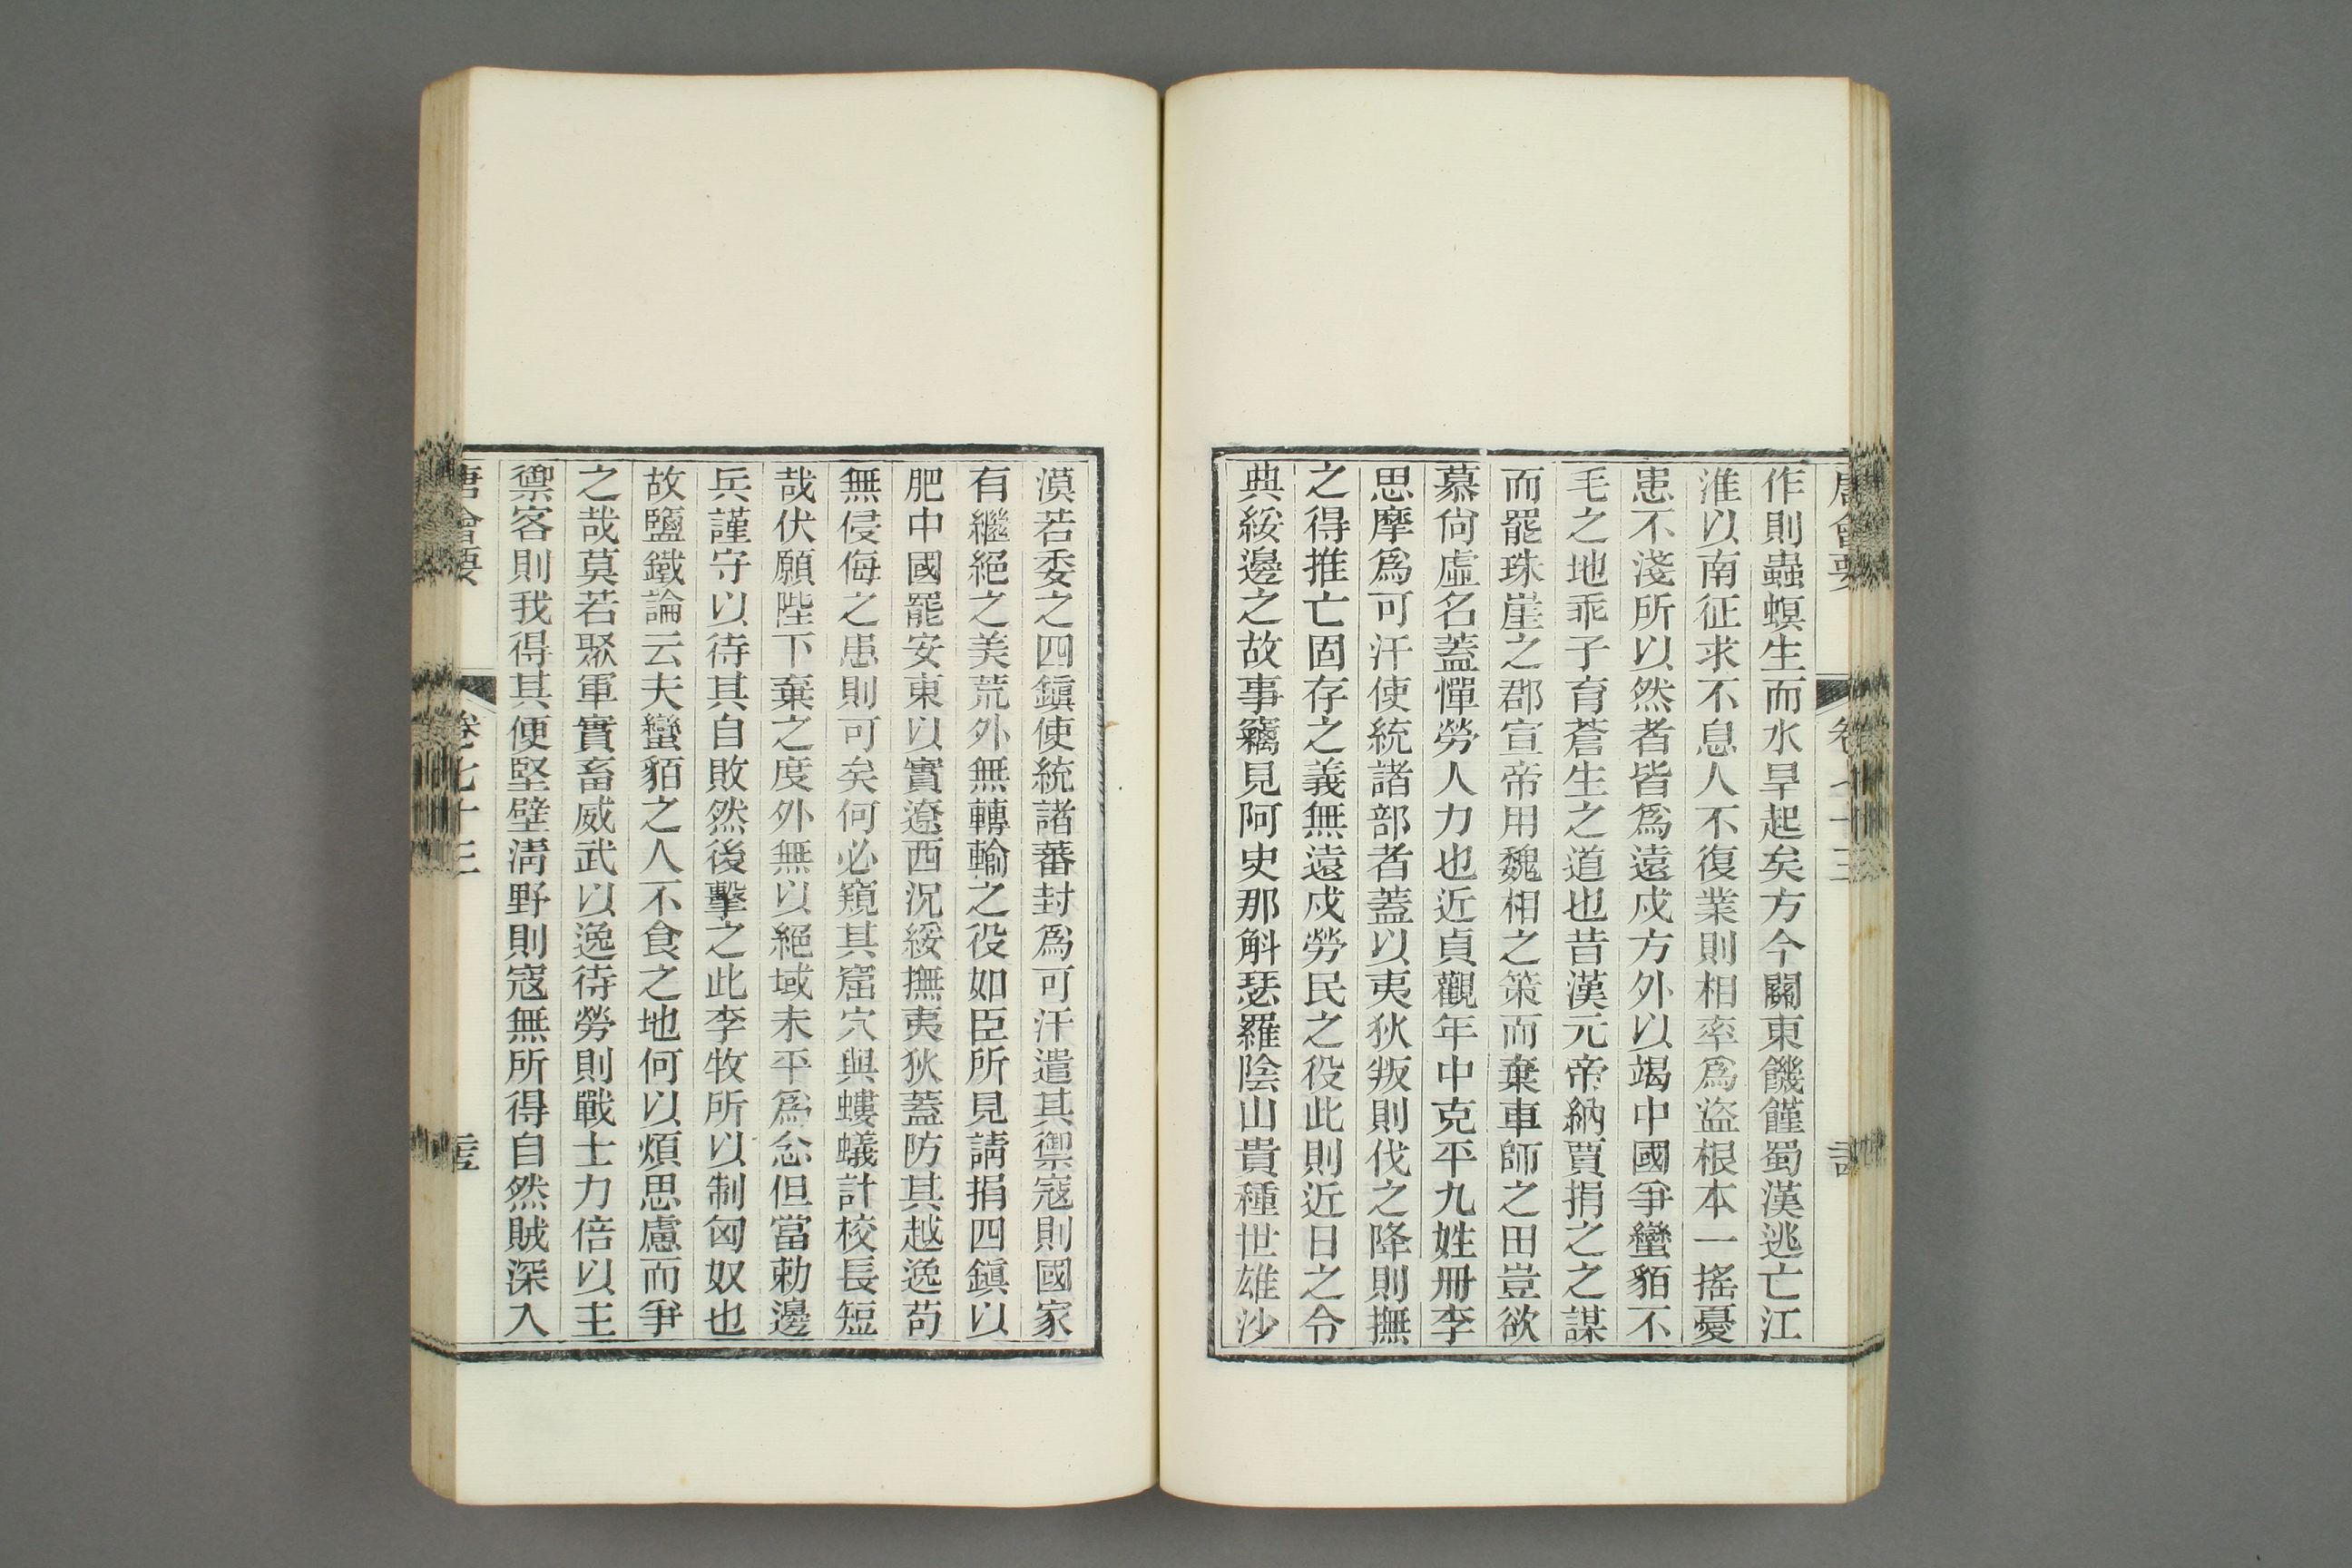 作則蟲螟生而水旱起矣方今關東饑饉蜀漢逃亡江
淮以南征求不息人不復業則相率爲盜根本一搖憂
患不淺所以然者皆爲遠戍方外以竭中國爭蠻貊不
毛之地乖子育蒼生之道也昔漢元帝納賈捐之之謀
而罷珠崖之郡宣帝用魏相之策而棄車師之田豈欲
慕尙虛名蓋憚勞人力也近貞觀年中克平九姓冊李
思摩爲可汗使統諸部者蓋以夷狄叛則伐之降則撫
之得推亡固存之義無遠戍勞民之役此則近日之令
典綏邊之故事竊見阿史那斛瑟羅陰山貴種世雄沙
漠若委之四鎭使統諸蕃封爲可汗遣其禦寇則國家
有繼絕之美荒外無轉輸之役如臣所見請捐四鎭以
肥中國罷安東以實遼西況綏撫夷狄蓋防其越逸苟
無侵侮之患則可矣何必窺其窟穴與螻蟻計校長短
哉伏願陛下棄之度外無以絕域未平爲念但當勅邊
兵謹守以待其自敗然後擊之此李牧所以制匈奴也
故鹽鐵論云夫蠻貊之人不食之地何以煩思慮而爭
之哉莫若聚軍實畜威武以逸待勞則戰士力倍以主
禦客則我得其便堅壁淸野則寇無所得自然賊深入
唐會要 卷七十三